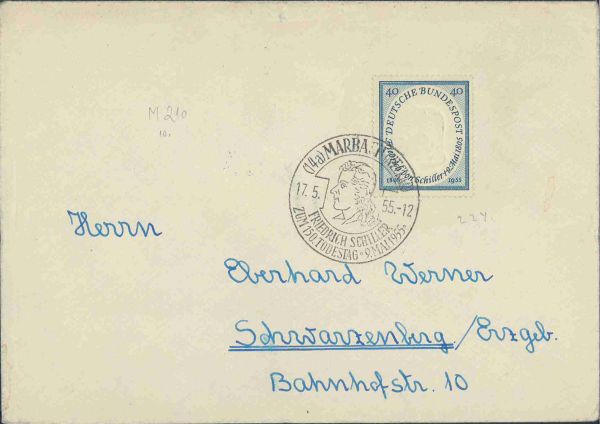 M 210
10.
40 40
DEUTSCHE BUNDESPOST
Friedrich von Schiller + 9. Mai 1805
1955
(14a) MARBACH
17. 5. 55.-12
FRIEDRICH SCHILLER
ZUM 150. TODESTAG * 9. MAI 1955
224.
Herrn
Eberhard Werner
Schwarzenberg / Erzgeb.
Bahnhofstr. 10